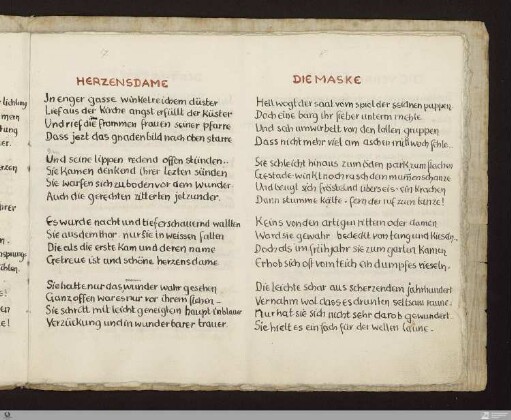 HERZENSDAME
In enger gasse winkelreichem düster
Lief aus der kirche angst erfüllt der küster
Und rief die frommen frauen seiner pfarre
Dass jezt das gnadenbild nach oben starre
Und seine lippen redend offen stünden..
Sie kamen denkend ihrer lezten sünden
Sie warfen sich zu boden vor dem wunder
Auch die gerechten zitterten jetzunder.
Es wurde nacht und tieferschauernd wallten
Sie aus dem thor. nur sie in weissen falten
Die als die erste kam und deren name
Getreue ist und schöne herzensdame
Sie hatte nur das wunder wahr gesehen
Ganz offen war es nur vor ihrem flehen
Sie schritt mit leicht geneigtem haupt in blauer
Verzückung und in wunderbarer trauer.
DIE MASKE
Hell wogt der saal vom spiel der seidnen puppen.
Doch eine barg ihr fieber unterm mehle
Und sah umwirbelt von den tollen gruppen
Dass nicht mehr viel am aschermittwoch fehle..
Sie schleicht hinaus zum öden park zum flachen
Gestade. winkt noch rasch dem mummenschanze
Und beugt sich fröstelnd übers eis. ein krachen
Dann stumme kälte. fern der ruf zum tanze!
Keins von den artigen rittern oder damen
Ward sie gewahr bedeckt von tang und kieseln..
Doch als im frühjahr sie zum garten kamen
Erhob sich oft vom teich ein dumpfes rieseln.
Die leichte schar aus scherzendem jahrhundert
Vernahm wol dass es drunten seltsam raune.
Nur hat sie sich nicht sehr darob gewundert
Sie hielt es einfach für der wellen laune.